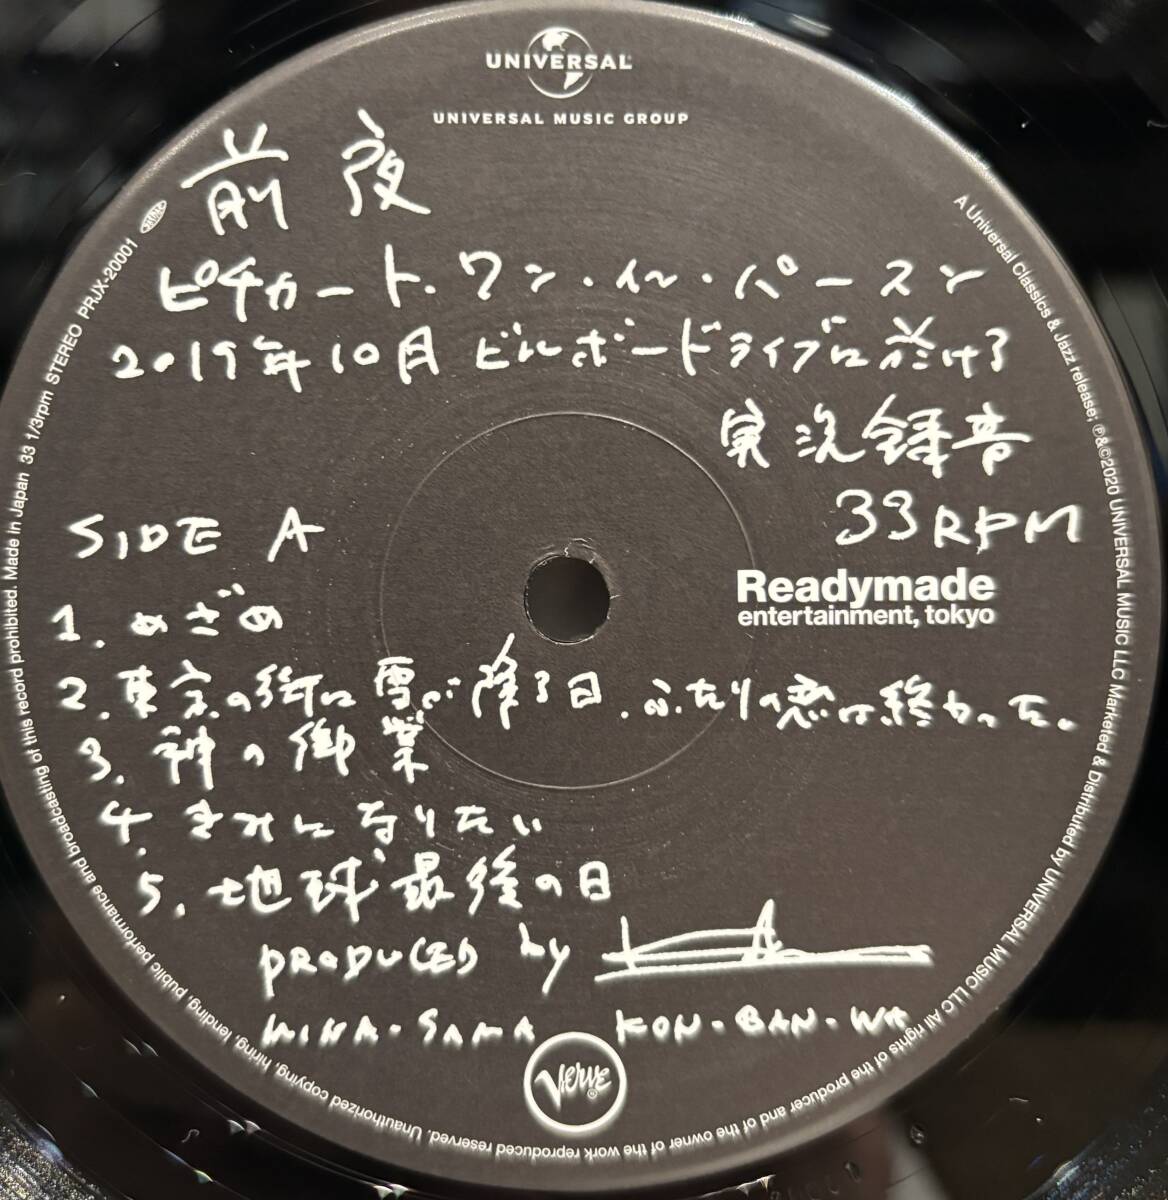 UNIVERSAL
UNIVERSAL MUSIC GROUP
前夜
ピチカート・ワン・イン・パースン
2019年10月ビルボードライブに於ける
実況録音
33RPM
SIDE A
Readymade
entertainment, tokyo
1. めざめ
2. 東京の街に雪が降る日、ふたりの恋は終わった。
3. 神の御業
4. きみになりたい
5. 地球最後の日
PRODUCED by
MINA-SAMA KON-BAN-WA
Verve
Unauthorized copying, hiring, lending, public performance and broadcasting of this record prohibited. Made in Japan 33 1/3rpm STEREO PRJX-20001
A Universal Classics & Jazz release; ℗&©2020 UNIVERSAL MUSIC LLC Marketed & Distributed by UNIVERSAL MUSIC LLC All rights of the producer and of the owner of the work reproduced reserved.